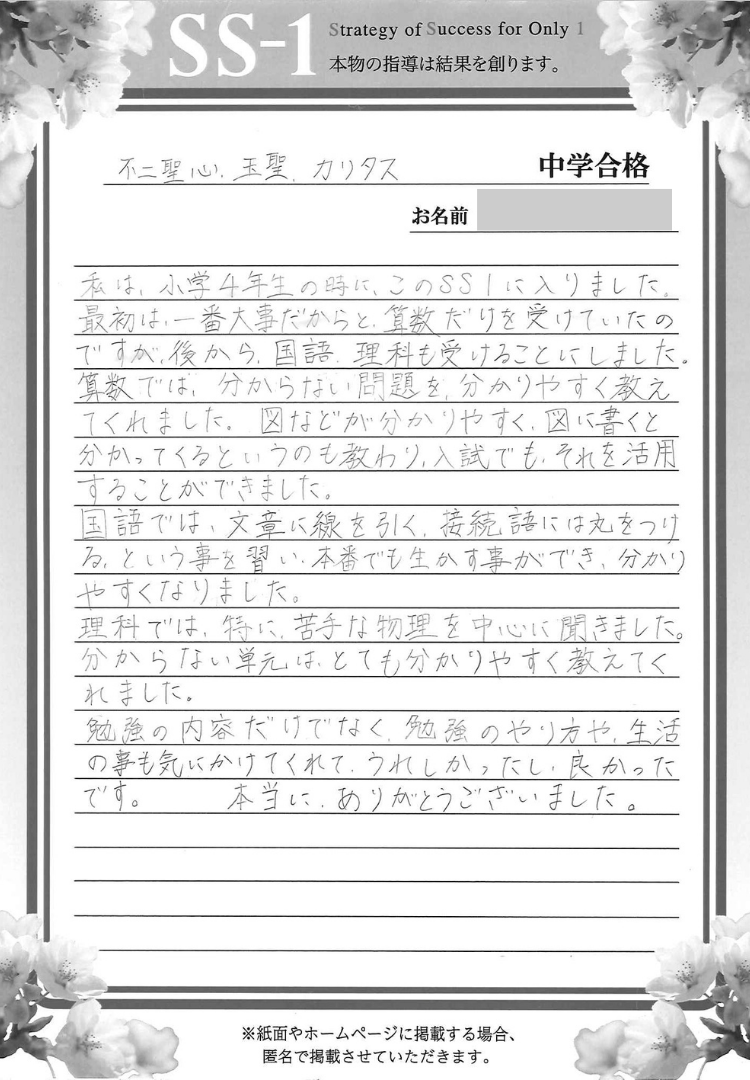 SS-1 Strategy of Success for Only 1
本物の指導は結果を創ります。
不二聖心、玉聖、カリタス 中学合格
お名前
私は、小学4年生の時に、このSS1に入りました。
最初は、一番大事だからと、算数だけを受けていたの
ですが、後から、国語、理科も受けることにしました。
算数では、分からない問題を、分かりやすく教え
てくれました。図などが分かりやすく、図に書くと
分かってくるというのも教わり、入試でも、それを活用
することができました。
国語では、文章に線を引く、接続語には丸をつけ
る、という事を習い、本番でも生かす事ができ、分かり
やすくなりました。
理科では、特に、苦手な物理を中心に聞きました。
分からない単元は、とても分かりやすく教えてく
れました。
勉強の内容だけでなく、勉強のやり方や、生活
の事も気にかけてくれて、うれしかったし、良かった
です。 本当に、ありがとうございました。
※紙面やホームページに掲載する場合、
匿名で掲載させていただきます。